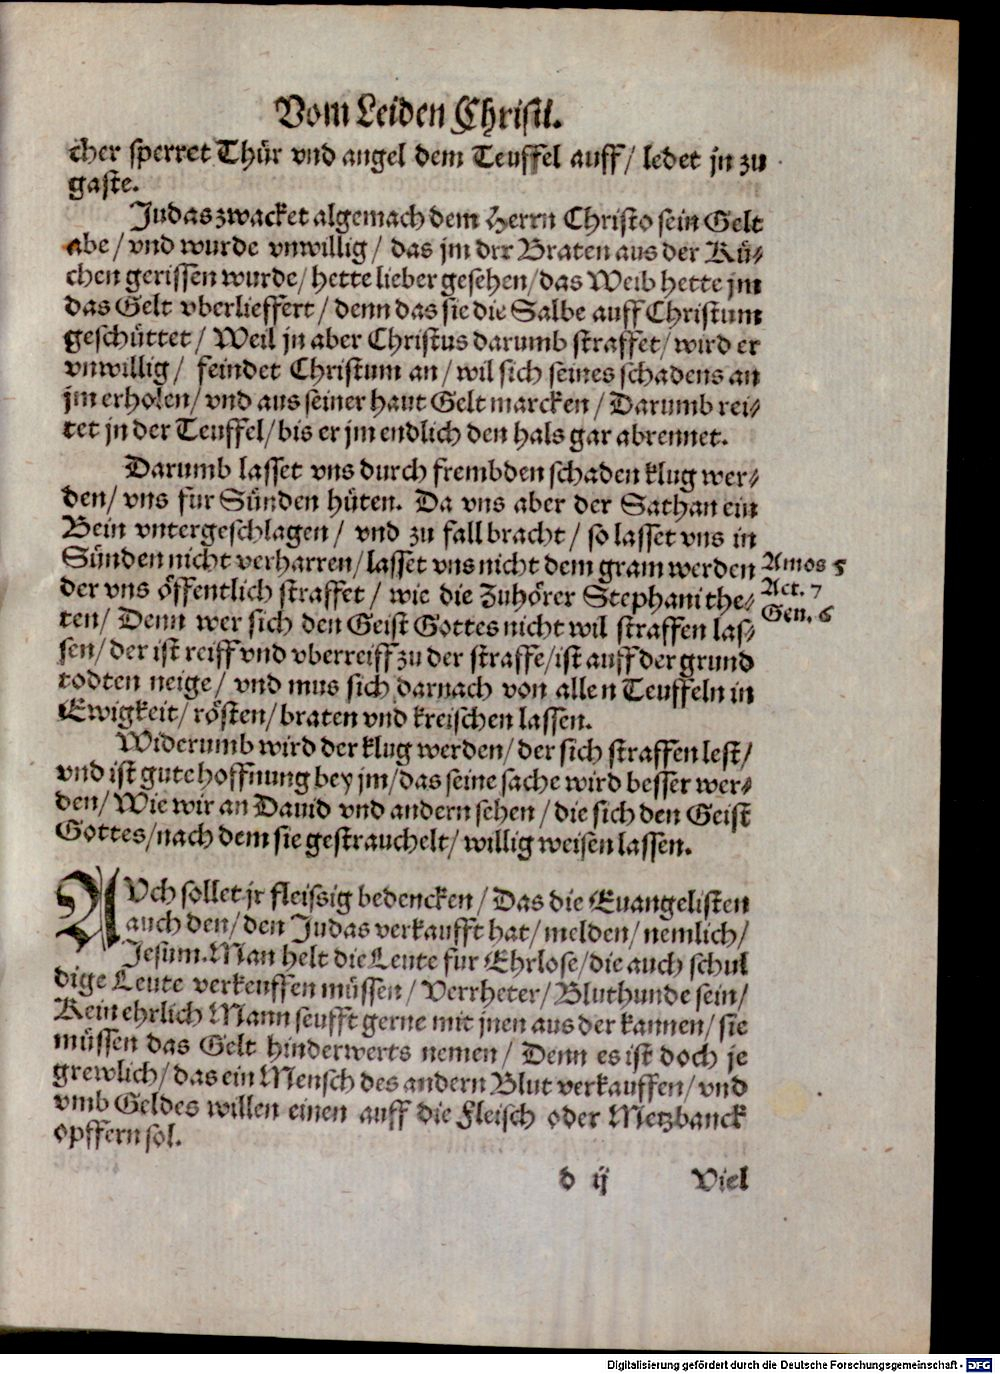 Vom Leiden Christi.
cher sperret Thür vnd angel dem Teuffel auff/ ledet jn zu
gaste.
Judas zwacket algemach dem Herrn Christo sein Gelt
abe/ vnd wurde vnwillig/ das jm der Braten aus der Kü-
chen gerissen wurde/ hette lieber gesehen/ das Weib hette jm
das Gelt vberlieffert/ denn das sie die Salbe auff Christum
geschüttet/ Weil jn aber Christus darumb straffet/ wird er
vnwillig/ feindet Christum an/ wil sich seines schadens an
jm erholen/ vnd aus seiner haut Gelt marcken/ Darumb rei-
tet jn der Teuffel/ bis er jm endlich den hals gar abrennet.
Darumb lasset vns durch frembden schaden klug wer-
den/ vns fur Sünden hüten. Da vns aber der Sathan ein
Bein vntergeschlagen/ vnd zu fall bracht/ so lasset vns in
Sünden nicht verharren/ lasset vns nicht dem gram werden
der vns öffentlich straffet/ wie die Zuhörer Stephani the-
ten/ Denn wer sich den Geist Gottes nicht wil straffen las-
sen/ der ist reiff vnd vberreiff zu der straffe/ ist auff der grund
todten neige/ vnd mus sich darnach von allen Teuffeln in
Ewigkeit/ rösten/ braten vnd kreischen lassen.
Amos 5
Act. 7
Gen. 6
Widerumb wird der klug werden/ der sich straffen lest/
vnd ist gute hoffnung bey jm/ das seine sache wird besser wer-
den/ Wie wir an Dauid vnd andern sehen/ die sich den Geist
Gottes/ nach dem sie gestrauchelt/ willig weisen lassen.
AVch sollet jr fleissig bedencken/ Das die Euangelisten
auch den/ den Judas verkaufft hat/ melden/ nemlich/
Jesum. Man helt die Leute fur Ehrlose/ die auch schul
dige Leute verkeuffen müssen/ Verrheter/ Bluthunde sein/
Kein ehrlich Mann seufft gerne mit jnen aus der kannen/ sie
müssen das Gelt hinderwerts nemen/ Denn es ist doch je
grewlich/ das ein Mensch des andern Blut verkauffen/ vnd
vmb Geldes willen einen auff die Fleisch oder Metzbanck
opffern sol.
d ij Viel
Digitalisierung gefördert durch die Deutsche Forschungsgemeinschaft - DFG